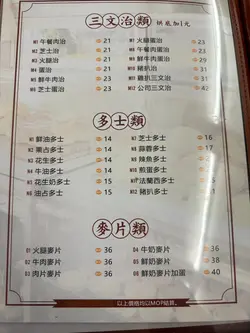 三文治類 烘底加1元
M1 午餐肉治 21
M2 芝士治 21
M3 火腿治 21
M4 蛋治 21
M5 鮮牛肉治 23
M6 芝士蛋治 23
M7 火腿蛋治 23
M8 午餐肉蛋治 23
M9 鮮牛肉蛋治 29
M10 豬扒治 31
M11 雞扒三文治 31
M12 公司三文治 42
多士類
N1 鮮油多士 14
N2 果占多士 14
N3 花生多士 14
N4 牛油多士 14
N5 花生奶多士 15
N6 油占多士 15
N7 芝士多士 16
N8 蒜蓉多士 17
N9 辣魚多士
N10 煎蛋多士
N11 法蘭西多士
N12 豬扒多士
麥片類
O1 火腿麥片 36
O2 牛肉麥片 36
O3 肉片麥片 36
O4 牛奶麥片 36
O5 鮮奶麥片 38
O6 鮮奶麥片加蛋 40
以上價格均以MOP結算。